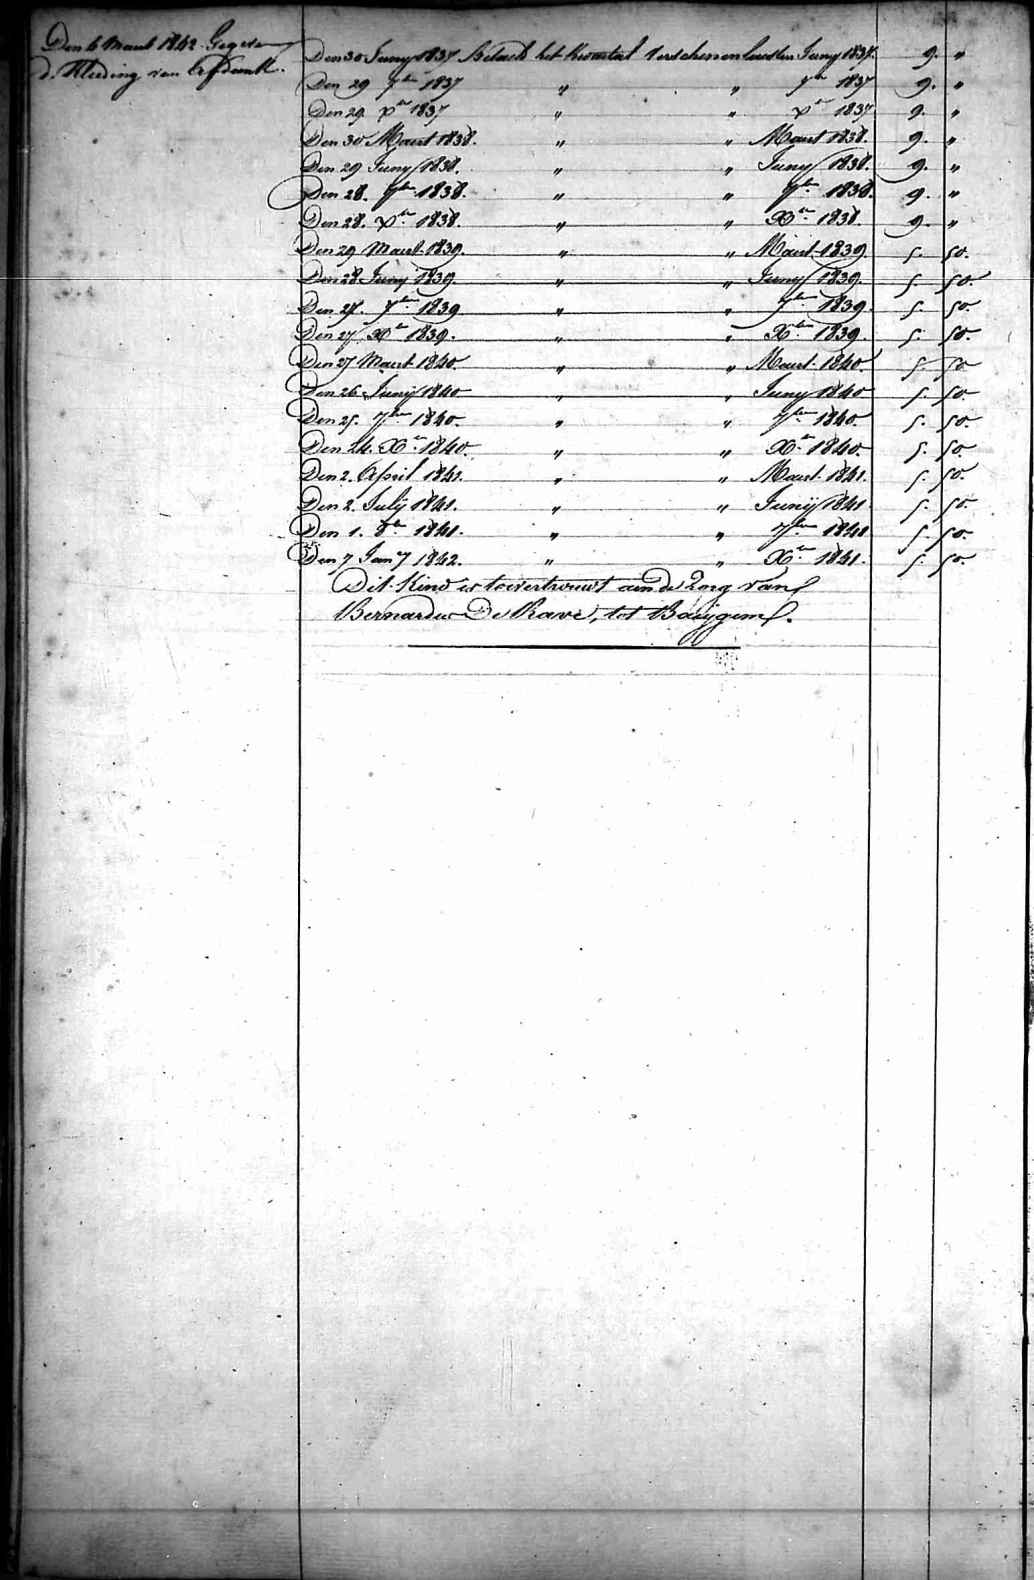 Den 6 Maart 1842 Gegeven
d. Kleeding van Afdank.
Den 30 Juny 1837 Betaelt het kwartael Verschenen laesten Juny 1837. 9. "
Den 29 7ber 1837 " " 7ber 1837 9. "
Den 29 Xer 1837 " " Xer 1837 9. "
Den 30 Maart 1838. " " Maart 1838. 9. "
Den 29 Juny 1838. " " Juny 1838. 9. "
Den 28. 7ber 1838. " " 7ber 1838. 9. "
Den 28. Xber 1838. " " Xber 1838. 9. "
Den 29 Maart 1839. " " Maart 1839. 5. 50.
Den 28 Juny 1839. " " Juny 1839. 5. 50.
Den 27. 7ber 1839 " " 7ber 1839. 5. 50.
Den 27 Xer 1839. " " Xber 1839. 5. 50.
Den 27 Maart 1840. " " Maart 1840. 5. 50
Den 26 Junij 1840 " " Juny 1840 5. 50.
Den 25. 7ber 1840. " " 7ber 1840. 5. 50.
Den 24. Xer 1840. " " Xer 1840. 5. 50.
Den 2. April 1841. " " Maart 1841. 5. 50.
Den 2. Julij 1841. " " Junij 1841 5. 50.
Den 1. 8ber 1841. " " 7ber 1841 5. 50.
Den 7 Jany 1842. " " Xer 1841. 5. 50.
Dit Kind is toevertrouwt aen de Zorg van
Bernardus De Ravé, tot Baijgem.